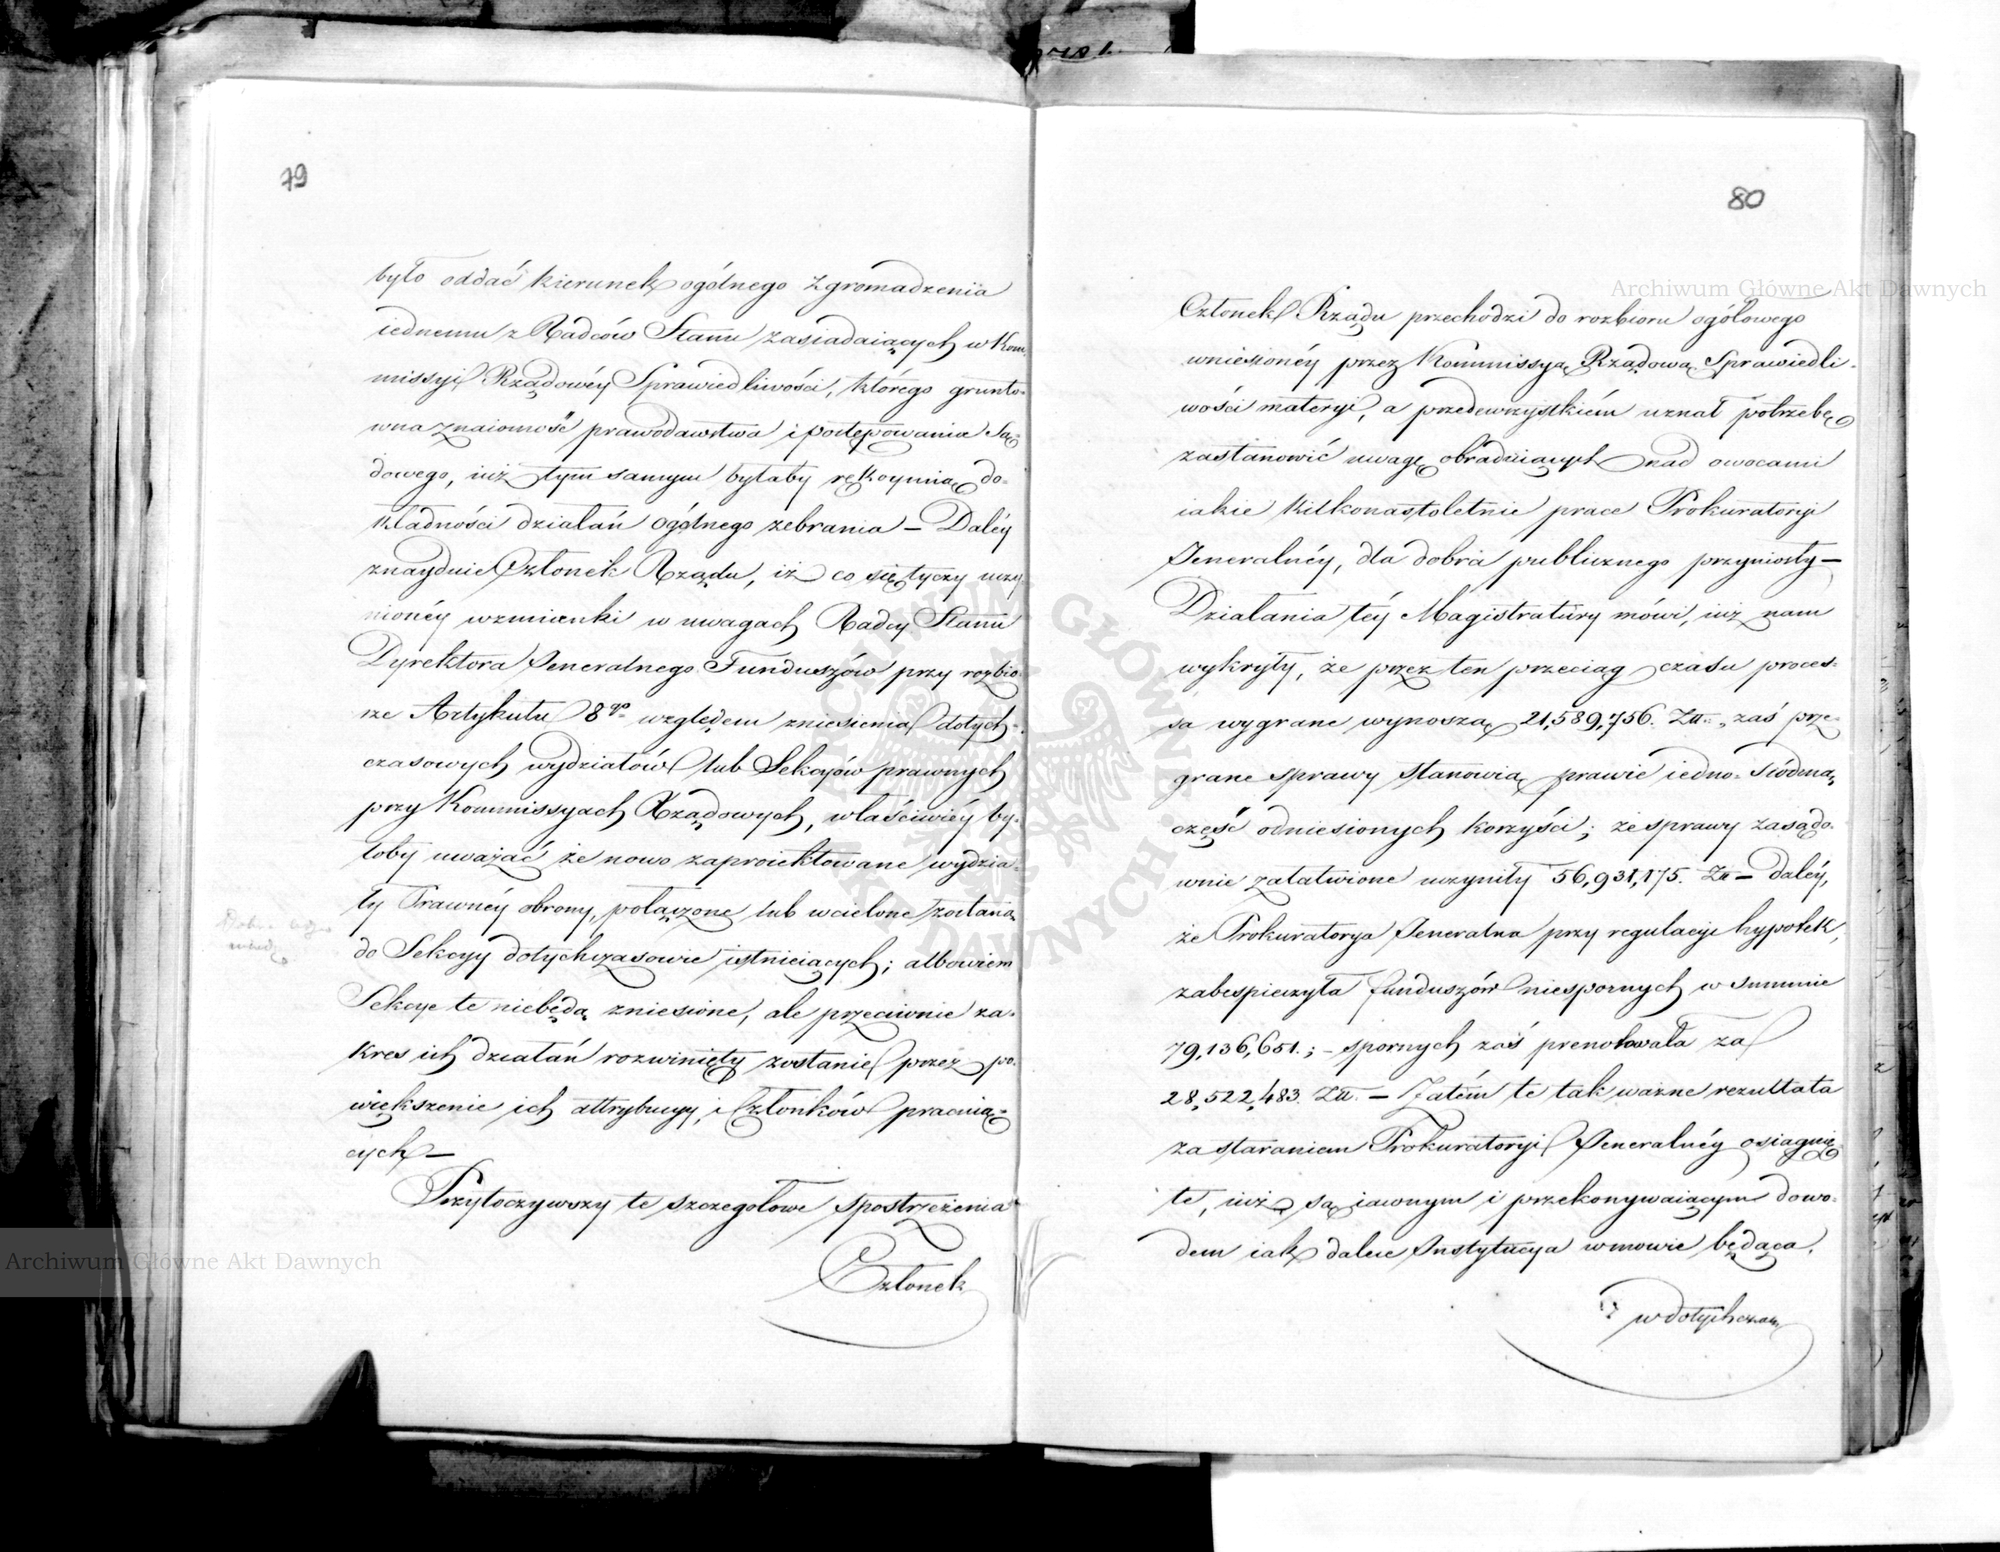 79
było oddać kierunek ogólnego Zgromadzenia
iednemu z Radców Stanu zasiadaiących w Kom-
missyi Rządowéy Sprawiedliwości, którego grunto-
wna znaiomość prawodawstwa i postępowania Są-
dowego, iuż tym samym byłaby rękoymią do-
kładności działań ogólnego zebrania – Daléy
znayduie Członek Rządu, iż co się tyczy uczy
nionéy wzmianki w uwagach Radcy Stanu
Dyrektora Jeneralnego Funduszów przy rozbio-
rze Artykułu 8go względem zniesienia dotych-
czasowych wydziałów lub Sekcyów prawnych
przy Kommissyach Rządowych, właściwiéy by-
łoby uważać że nowo zaproiektowane wydzia-
ły Prawnéy obrony, połączone lub wcielone zostaną
do Sekcyy dotychczasowie istnieiących; albowiem
Sekcye te niebędą zniesione, ale przeciwnie za-
kres ich działań rozwinięty zostanie przez po-
większenie ich attrybucyy, i Członków pracuią-
cych –
Przytoczywszy te szczegołowe spostrzeżenia
Członek
80
Członek Rządu przechodzi do rozbioru ogółowego
wniesionéy przez Kommissyą Rządową Sprawiedli-
wości materyi, a przedewszystkiém uznał potrzebę
zastanowić uwagę obraduiących nad owocami
iakie kilkonastoletnie prace Prokuratoryi
Jeneralnéy, dla dobra publicznego przyniosły –
Działania téy Magistratury mówi, iuż nam
wykryły, że przez ten przeciąg czasu proces-
sa wygrane wynoszą 21,589,756. Złł. „ zaś prze-
grane sprawy stanowią prawie iedno-siódmą
część odniesionych korzyści; że sprawy zasądo-
wnie załatwione uczyniły 56,931,175. Zł – daléy,
że Prokuratorya Jeneralna przy regulacyi hypotek,
zabespieczyła funduszów niespornych w summie
79,136,651.; – spornych zaś prenotowała za
28,522,483. Złł. – Zatém te tak ważne rezultata
za staraniem Prokuratoryi Jeneralnéy osiągnię-
te, iuż są iawnym i przekonywaiącym dowo-
dem iak dalece Instytucya w mowie będąca,
w dotychczas
Archiwum Główne Akt Dawnych
Archiwum Główne Akt Dawnych
ARCHIWUM GŁÓWNE AKT DAWNYCH